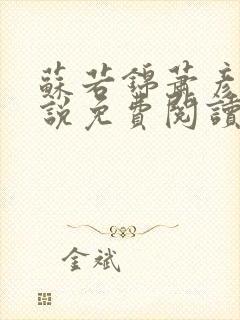 蘇若錦蕭彥
說免費閱讀
金斌